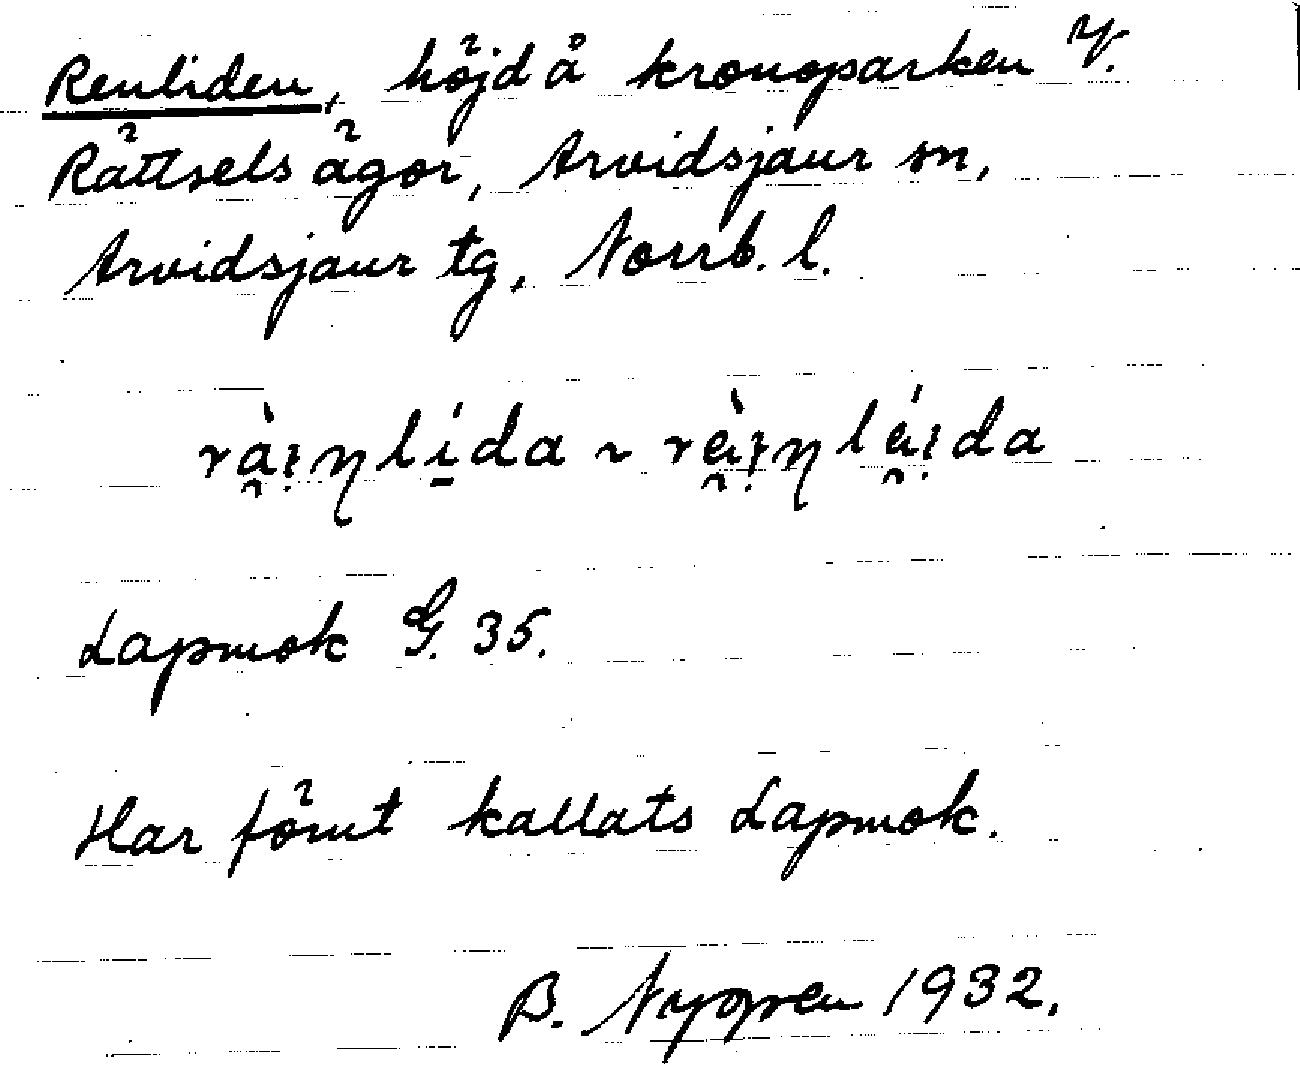 Renliden, höjd å kronoparken V.
Rättsels ägor, Arvidsjaur sn,
Arvidsjaur tg, Norrb. l.
Lapmok G. 35.
Har förut kallats Lapmok.
B. Nyppen 1932.